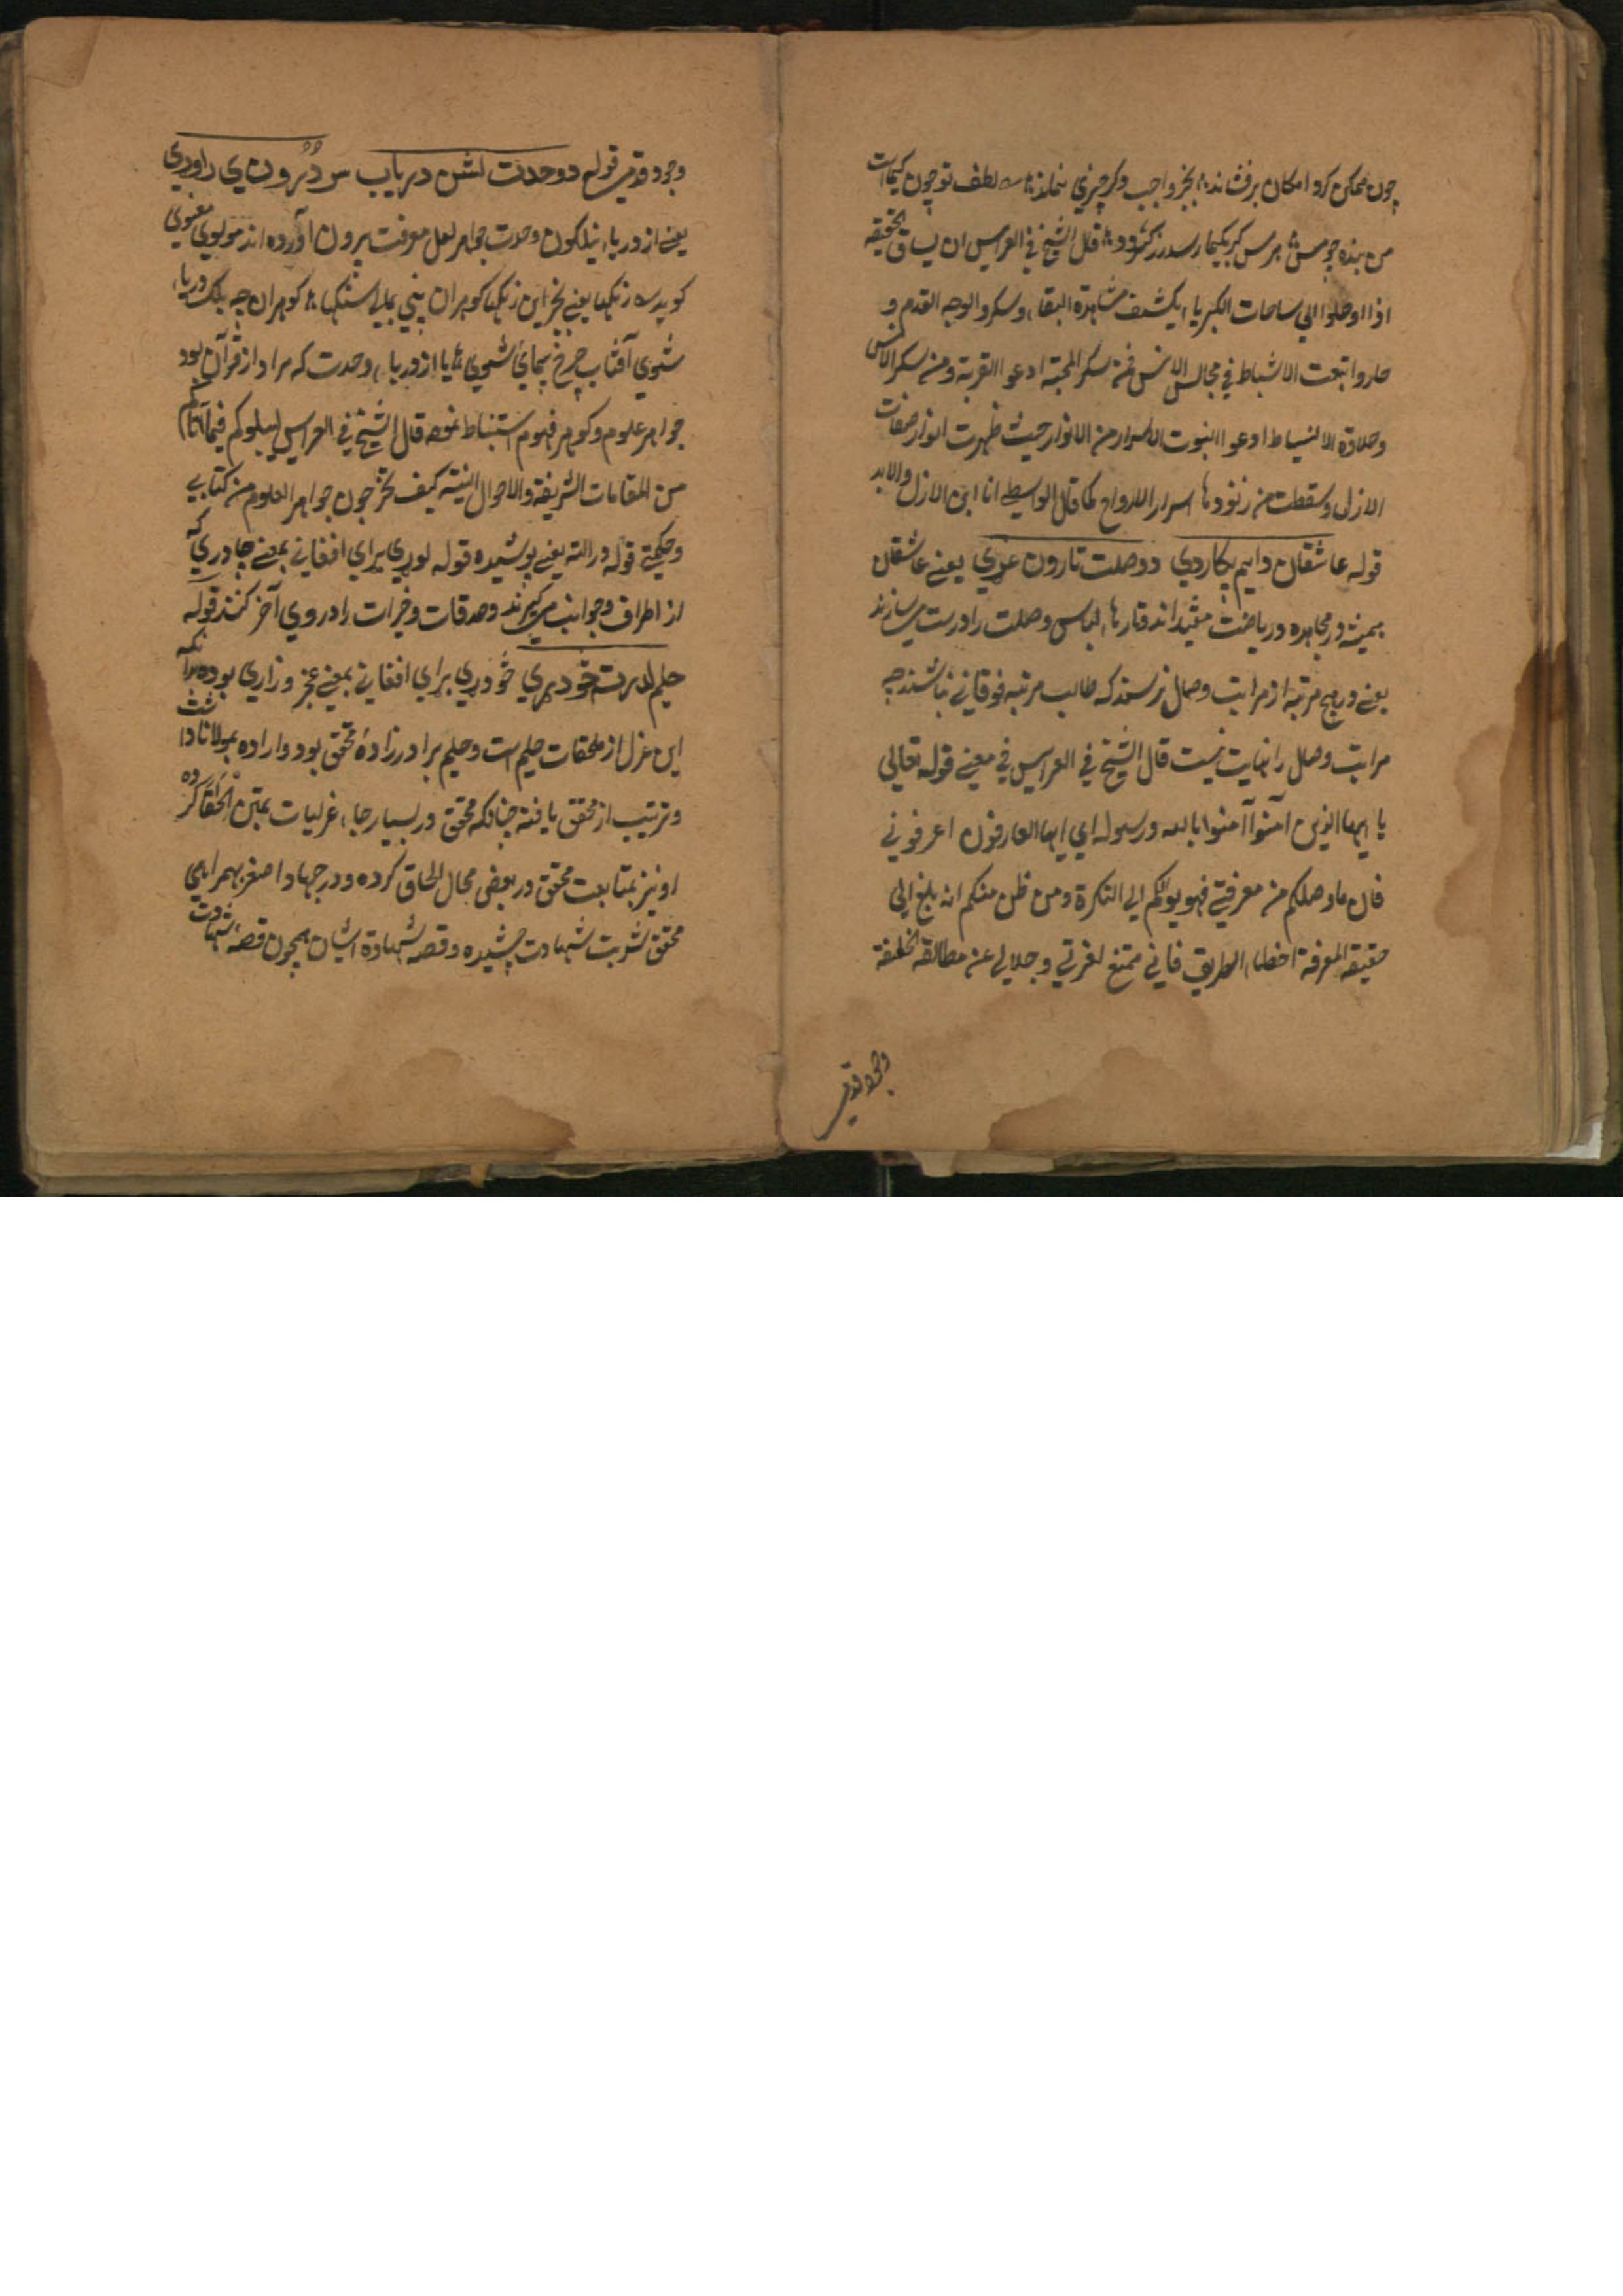 چون ممکن کرد امکان برفشاند بجز واجب دکر چیزی نماند لطف تو چون کیمیاست
من بنده چو مس هر مس که بکیمیا رسد زر کردد قال الشیخ فی العرایس ان یساق الحقیقه
اذا اوصلوا الی ساحات الکبریا یکشف مشاهدة البقا وسکروا لوجه القدم و
حاروا بنعت الانبساط فی مجالس الانس فمن سکر المحبة ادعوا القربة ومن سکر الانس
وحلاوة الانبساط ادعوا النبوت الاسرار من الانوار حیث ظهرت انوار صفات
الازلی وسقطت من زنودها اسرار الارواح کما قال الواسطی انا ابن الازل والابد
قوله عاشقان دایم پکاردی دوصلت تارون غړی یعنی عاشقان
همیشه در مجاهده وریاضت مقید اند وتارهاء لباس وصلت را درست میسازند
یعنی در هیچ مرتبه از مراتب وصال نرسند که طالب مرتبه فوقانی نباشند چه
مراتب وصل را نهایت نیست قال الشیخ فی العرایس فی معنی قوله تعالی
یا ایها الذین آمنوا آمنوا بالله ورسوله ای ایها العارفون اعرفونی
فان ما وصلکم من معرفتی فهو یوالکم الی النکرة ومن ظن منکم انه بلغ الی
حقیقة المعرفة اخطاء الطریق فانی ممتنع لعزتی وجلالی عن مطالقه الخلیقة
وجود قدم
وجود قدم قوله دوحدت لشن دریاب س دُرون ی راوړی
یعنی از دریاء نیلکون وحدت جواهر لعل معرفت بیرون آورده اند مولوی معنوی
کوید زنکها یعنی بجز این زنکها کوهران بینی بجای سنکها کوهران چه بلک دریاء
شوی آفتاب چرخ پیمای شوی یا از دریاء وحدت که مراد از قرآن بود
جواهر علوم وکوهر فهوم استنباط نموده قال الشیخ فی العرایس لیبلوکم فیما آتاکم
من المقامات الشریفة والاحوال السنیة کیف تخرجون جواهر العلوم من کتابی
وحکمتی قوله وراسته یعنی پوشیده قوله لوړی برای افغانی بمعنی چادری که
از اطراف وجوانب میکیرند وصدقات وخیرات را در وی آخر کنند قوله
حلیم لدیرت خودیری خودیری برای افغانی بمعنی عجز وزاری بوده بدانکه
این غزل از ملحقات حلیم است وحلیم برادر زادهٔ محقق بود واراده بمولانا داشت
وترتیب از محقق یافته چنانکه محقق در بسیار جاء غزلیات بمتن الحاق کرده
او نیز بمتابعت محقق در بعضی محال الحاق کرده ودر جهاد اصغر بهمراهی
محقق شربت شهادت چشیده وقصه شهادة ایشان همچون قصهٔ شهادت